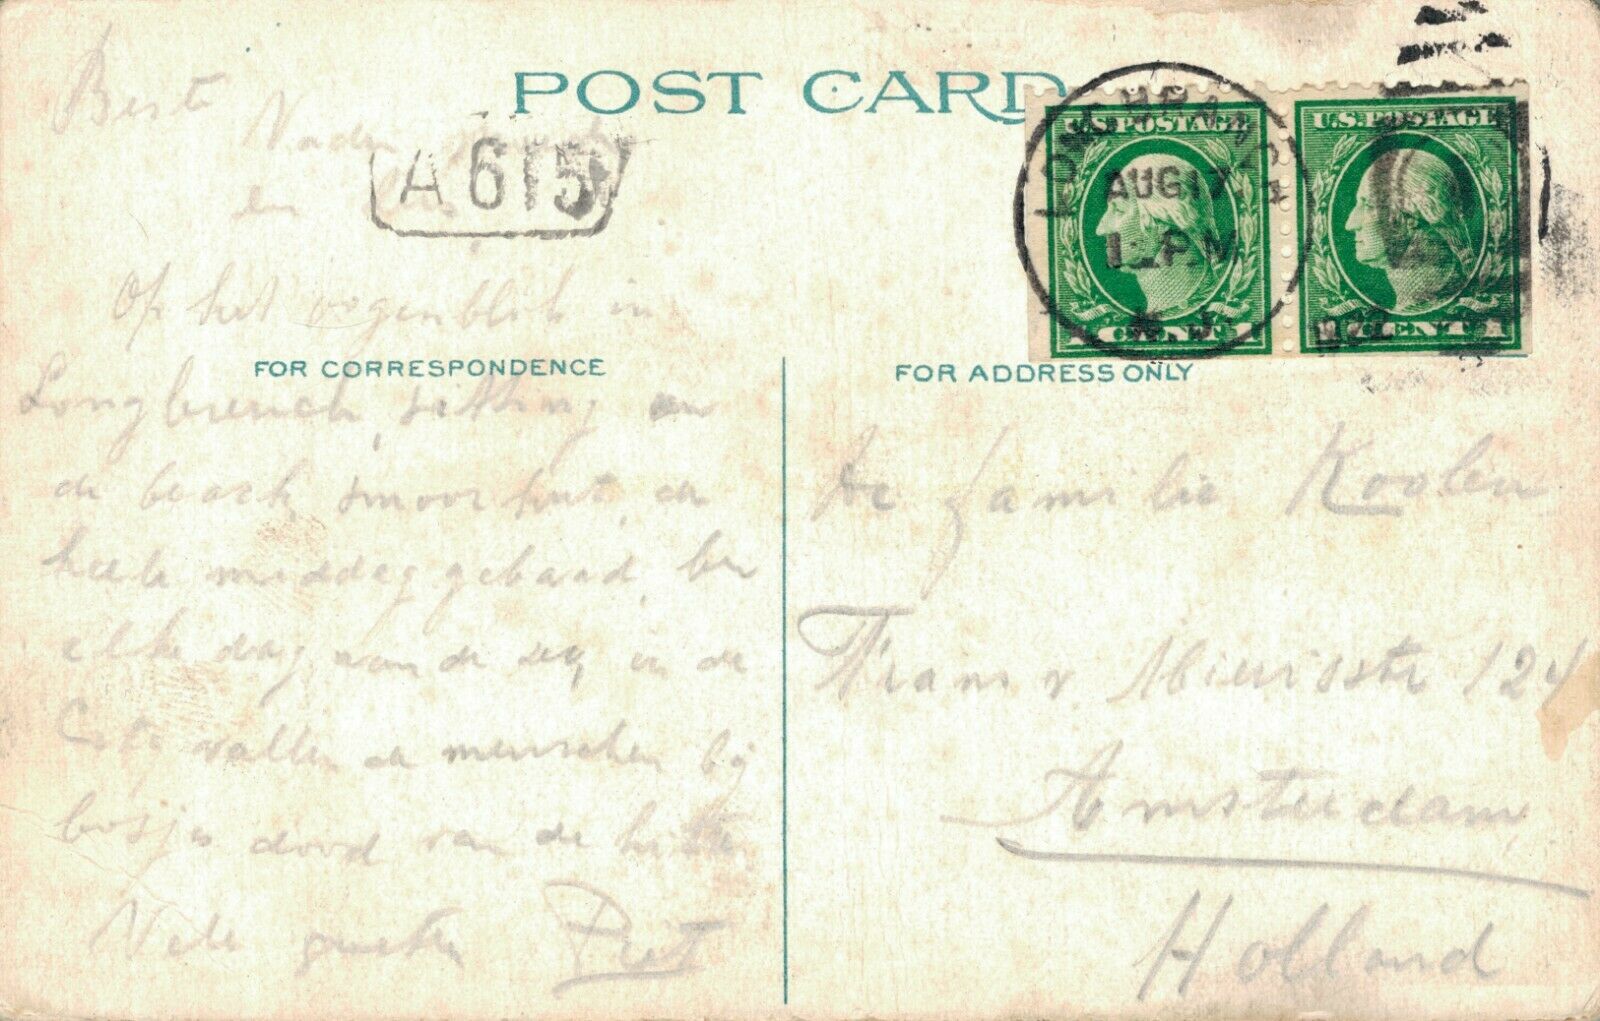 POST CARD
Beste
Vader
en
A 615
U.S. POSTAGE U.S. POSTAGE
LONG BRANCH
AUG 17
12 P.M
N.J.
1922
1 CENT 1 CENT 1
Op het oogenblik in
FOR CORRESPONDENCE
Longbrench, sitting
de beach smoor heet, de
heele middag gebaad, ber
elke dag aan de zee, in de
City vallen de menschen bij
bosjes dood van de hitte
Vele groeten Piet
FOR ADDRESS ONLY
De familie Koolen
Frans v. Mierisstr 124
Amsterdam
Holland